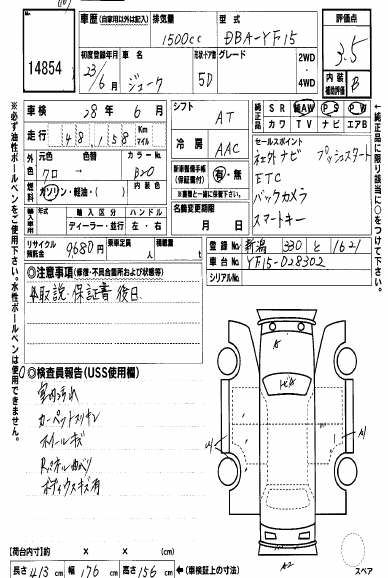 14854
車歴 (自家用以外は記入)
排気量 1500cc
型式 DBA-YF15
評価点 3.5
初度登録年月 23/6月
車名 ジューク
形状・ドア数 5D
グレード
2WD・4WD
内装補助評価 B
車検 28年 6月
シフト AT
純正品 SR AW PS PW
カワ TV ナビ エアB
走行 48,158 Km マイル
冷房 AAC
セールスポイント
社外ナビ プッシュスタート
ETC
バックカメラ
スマートキー
外色 元色 クロ → 色替 カラーNo.
燃料 ガソリン・軽油・( ) 内装色
新車整備手帳(保証書付) 有・無
輸入車 年式 輸入区分 ディーラー・並行 ハンドル 左・右
名義変更期限 月 日
リサイクル預託金 9,680円
乗車定員 人
積載量 t
登録No. 新潟 330 と 1621
車台No. YF15-028302
シリアルNo.
◎注意事項 (修復・不具合箇所および状態等)
取説 保証書 後日
◎検査員報告 (USS使用欄)
室内汚れ
ホイールキズ
A
A2
【荷台内寸】 × × (cm)
長さ 413 cm 幅 176 cm 高さ 156 cm (車検証上の寸法)
スペア
※必ず油性ボールペンをご使用下さい。水性ボールペンは使用できません。
←純正品に限り該当に○をつけて下さい。